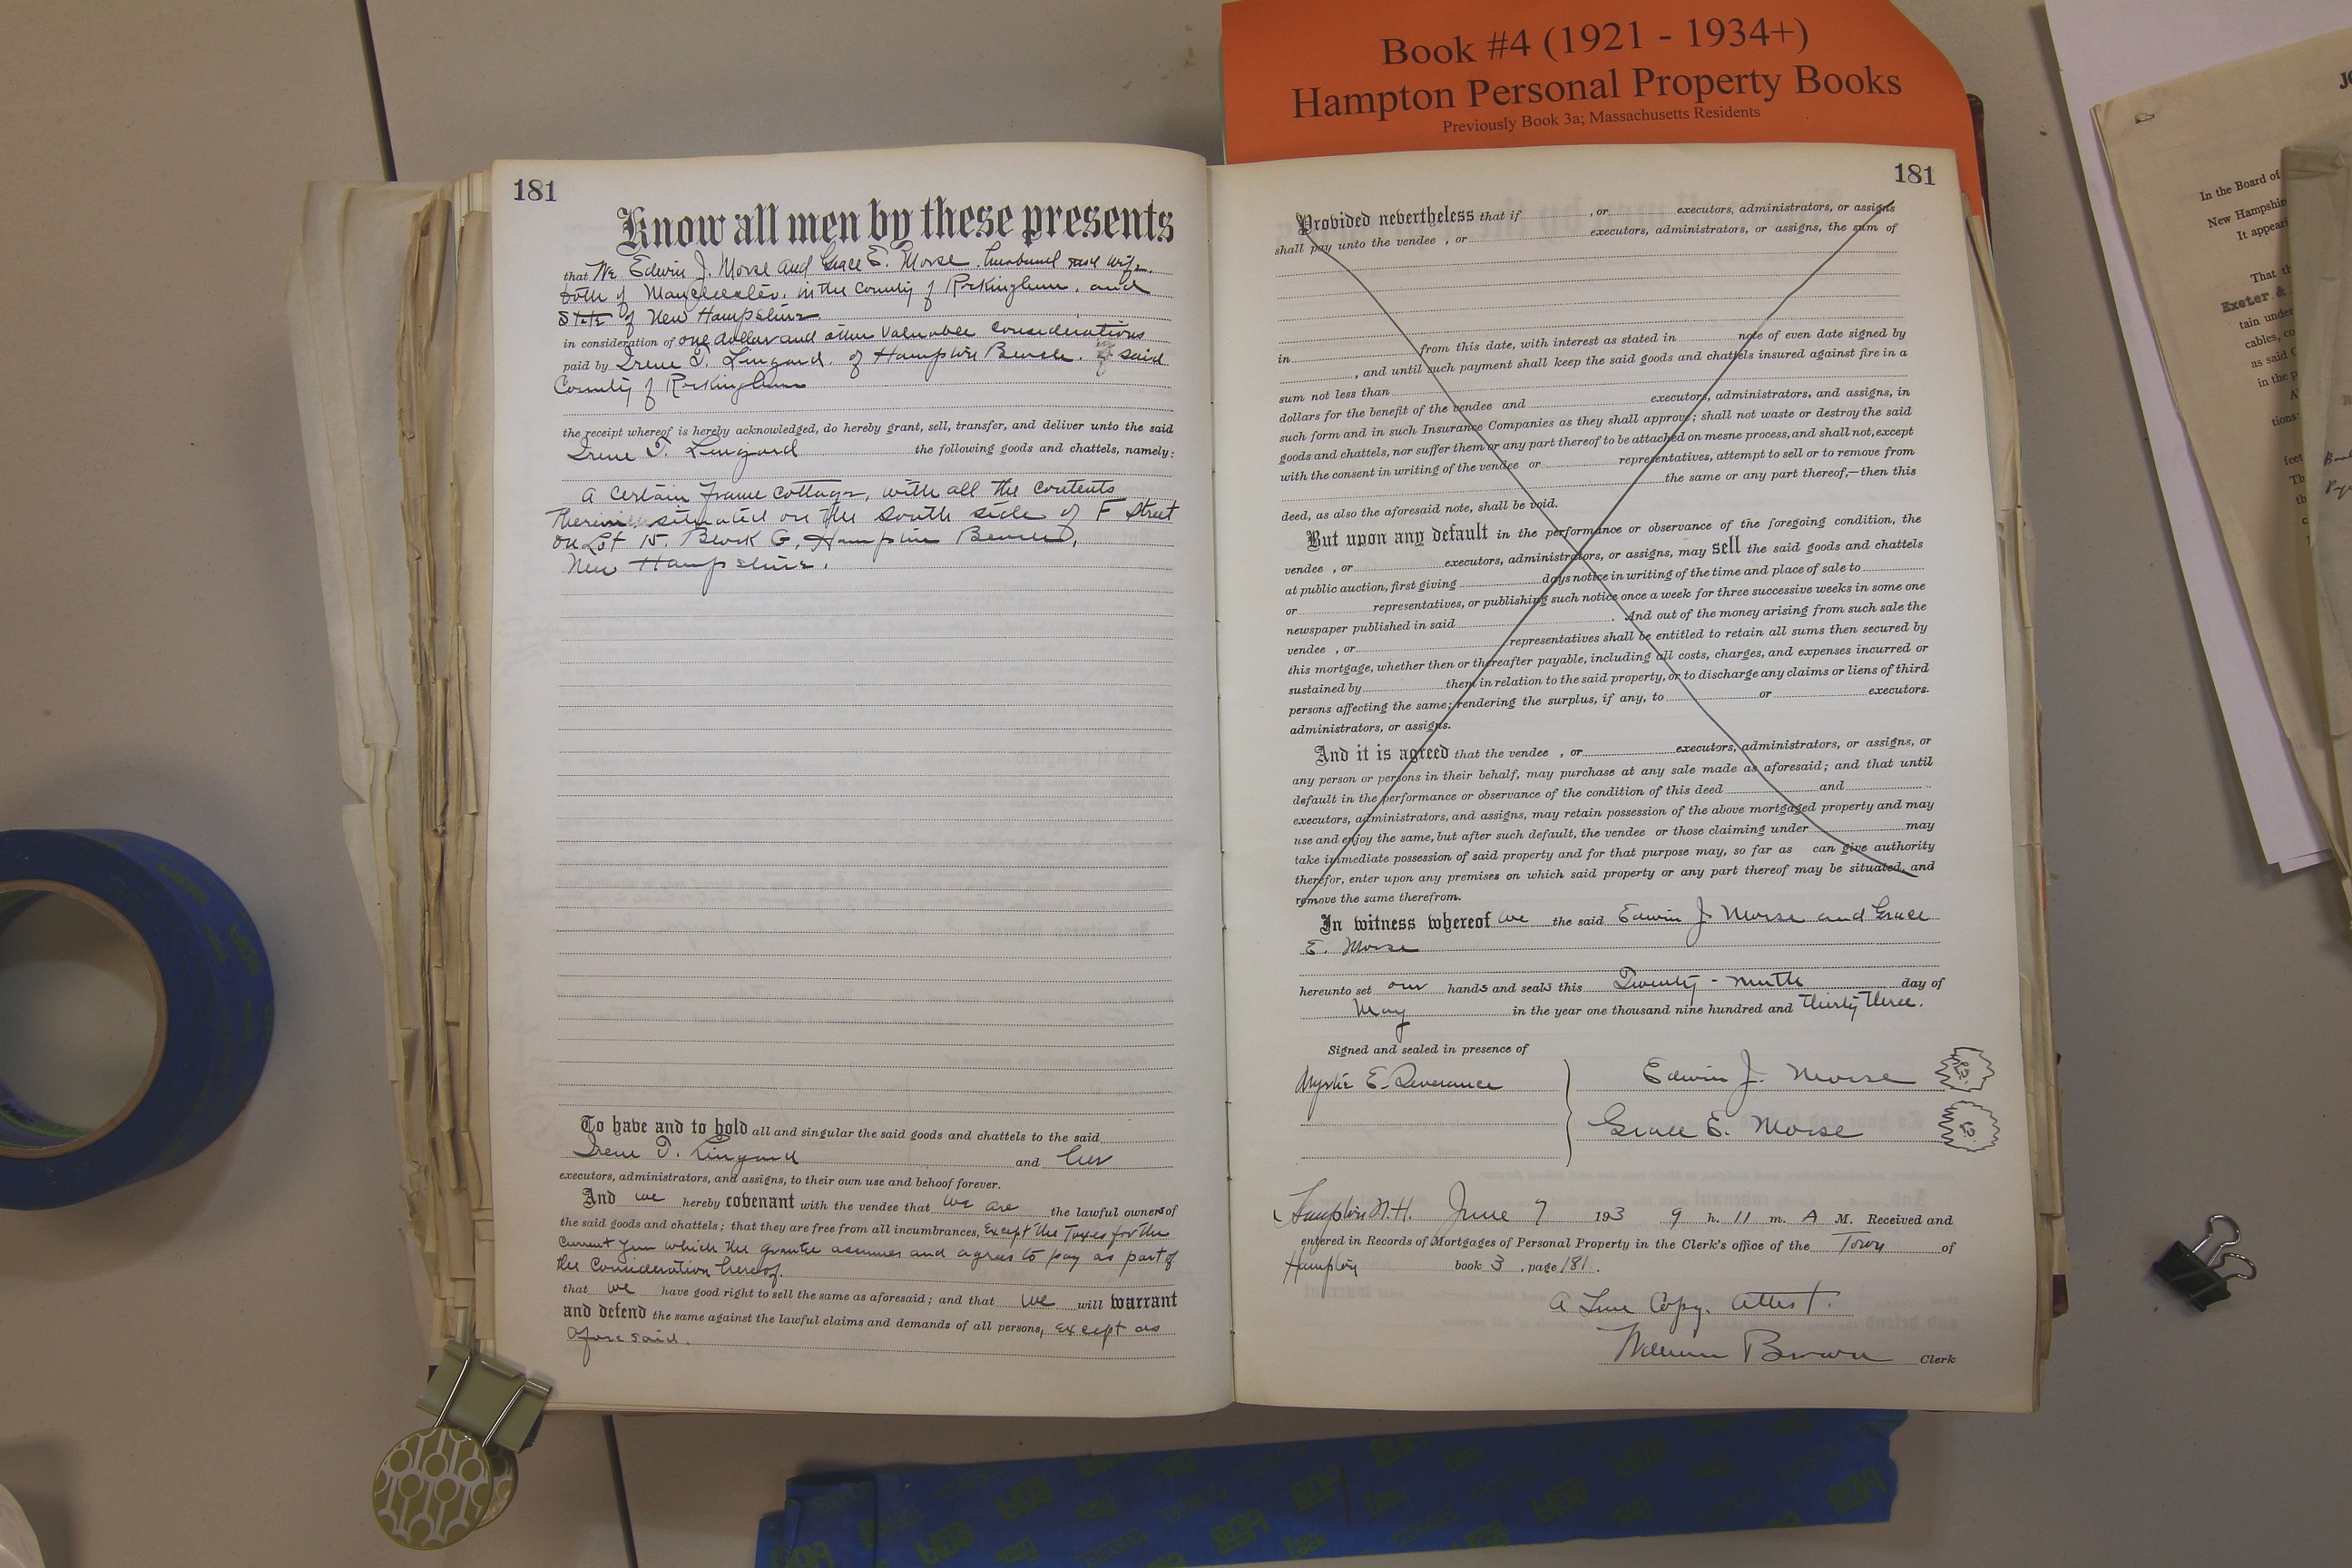 Book #4 (1921 - 1934+)
Hampton Personal Property Books
Previously Book 3a; Massachusetts Residents
181
Know all men by these presents
that We Edwin J. Morse and Grace E. Morse, husband and wife,
both of Manchester, in the County of Rockingham, and
State of New Hampshire
in consideration of one dollar and other valuable considerations
paid by Irene T. Lingard, of Hampton Beach, of said
County of Rockingham
the receipt whereof is hereby acknowledged, do hereby grant, sell, transfer, and deliver unto the said
Irene T. Lingard the following goods and chattels, namely:
A certain frame cottage, with all the contents
therein situated on the South side of F Street
on Lot 15, Block G, Hampton Beach,
New Hampshire.
To have and to hold all and singular the said goods and chattels to the said
Irene T. Lingard and her
executors, administrators, and assigns, to their own use and behoof forever.
And we hereby covenant with the vendee that we are the lawful owners of
the said goods and chattels; that they are free from all incumbrances, Except the Taxes for the
Current Year which the grantee assumes and agrees to pay as part of
the Consideration hereof.
that we have good right to sell the same as aforesaid; and that we will warrant
and defend the same against the lawful claims and demands of all persons, except as
aforesaid.
181
Provided nevertheless that if , or executors, administrators, or assigns
shall pay unto the vendee , or executors, administrators, or assigns, the sum of
in from this date, with interest as stated in note of even date signed by
, and until such payment shall keep the said goods and chattels insured against fire in a
sum not less than
dollars for the benefit of the vendee and executors, administrators, and assigns, in
such form and in such Insurance Companies as they shall approve; shall not waste or destroy the said
goods and chattels, nor suffer them or any part thereof to be attached on mesne process, and shall not, except
with the consent in writing of the vendee or representatives, attempt to sell or to remove from
the same or any part thereof,—then this
deed, as also the aforesaid note, shall be void.
But upon any default in the performance or observance of the foregoing condition, the
vendee , or executors, administrators, or assigns, may sell the said goods and chattels
at public auction, first giving days notice in writing of the time and place of sale to
or representatives, or publishing such notice once a week for three successive weeks in some one
newspaper published in said . And out of the money arising from such sale the
vendee , or representatives shall be entitled to retain all sums then secured by
this mortgage, whether then or thereafter payable, including all costs, charges, and expenses incurred or
sustained by them in relation to the said property, or to discharge any claims or liens of third
persons affecting the same; rendering the surplus, if any, to or executors.
administrators, or assigns.
And it is agreed that the vendee , or executors, administrators, or assigns, or
any person or persons in their behalf, may purchase at any sale made as aforesaid; and that until
default in the performance or observance of the condition of this deed and
executors, administrators, and assigns, may retain possession of the above mortgaged property and may
use and enjoy the same, but after such default, the vendee or those claiming under may
take immediate possession of said property and for that purpose may, so far as can give authority
therefor, enter upon any premises on which said property or any part thereof may be situated, and
remove the same therefrom.
In witness whereof we the said Edwin J Morse and Grace
E. Morse
hereunto set our hands and seals this Twenty-ninth day of
May in the year one thousand nine hundred and thirty three.
Signed and sealed in presence of
Myrtie E. Severance
Edwin J. Morse
Grace E. Morse
Hampton N.H. June 7 193 9 h. 11 m. A M. Received and
entered in Records of Mortgages of Personal Property in the Clerk's office of the Town of
Hampton book 3 , page 181.
A True Copy. Attest.
William Brown Clerk
In the Board of
New Hampshire
It appeari
That th
Exeter &
tain under
cables, co
as said C
in the p
tions
feet